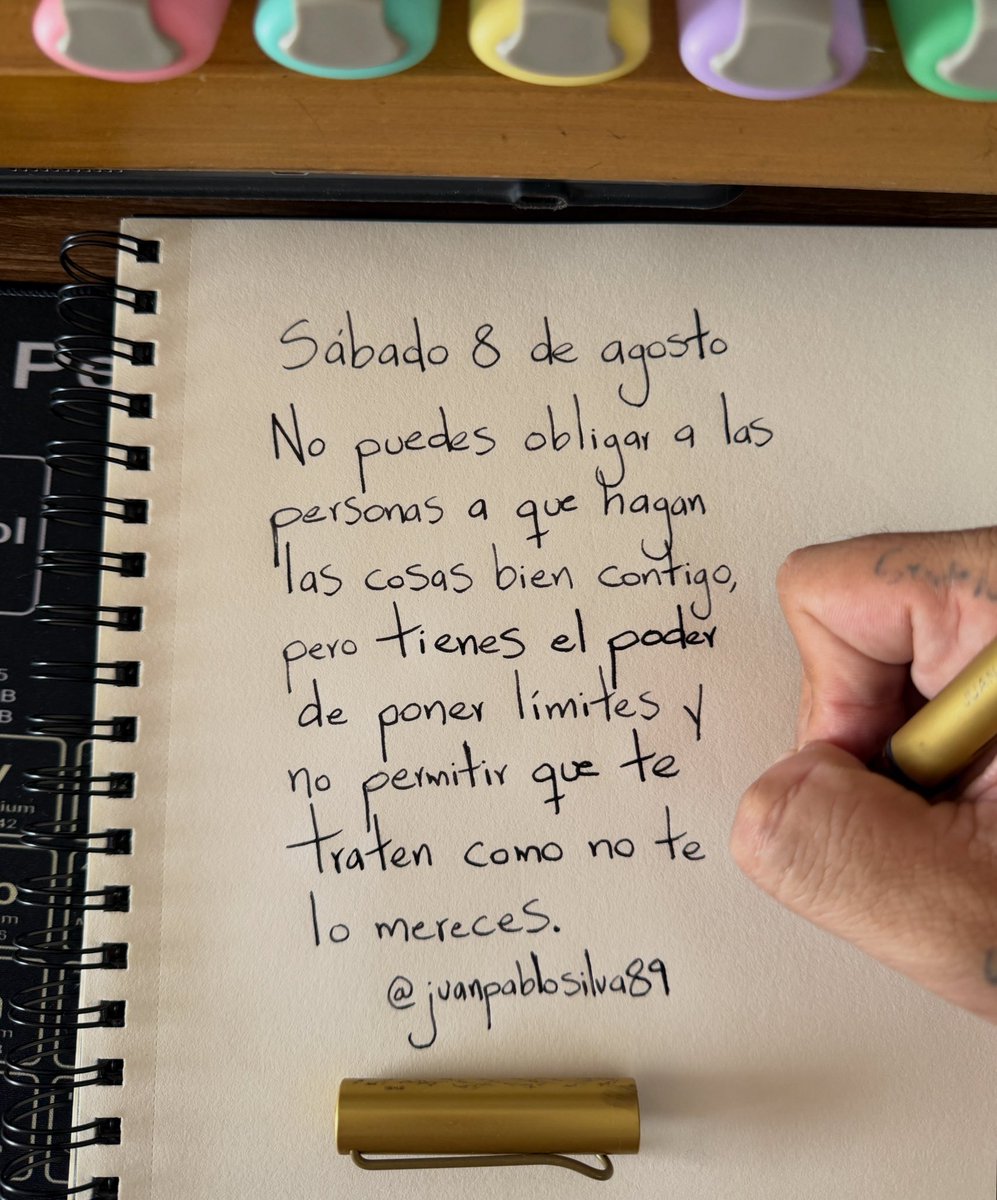 Sábado 8 de agosto
No puedes obligar a las
personas a que hagan
las cosas bien contigo,
pero tienes el poder
de poner límites y
no permitir que te
traten como no te
lo mereces.
@juanpablosilva89